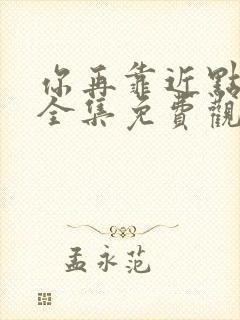 你再靠近點
全集免費觀
孟永范